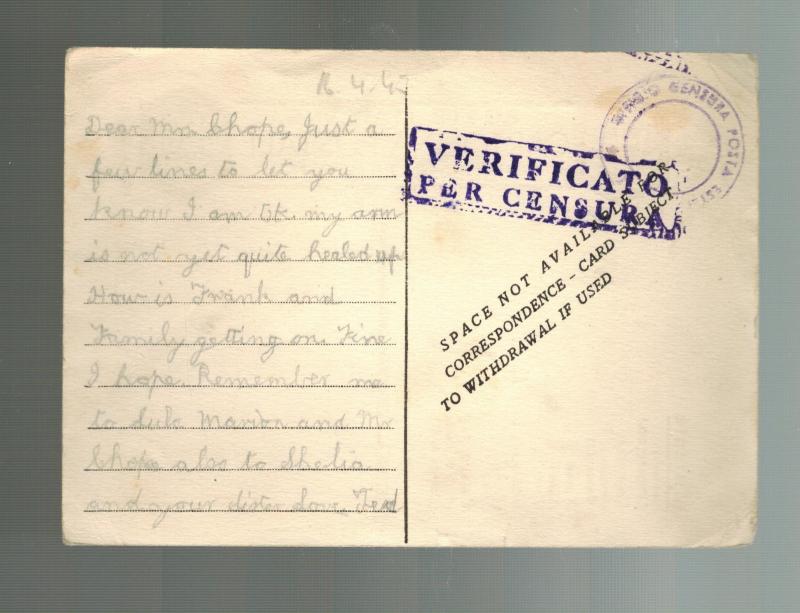 16.4.42
Dear Mrs. Chope, Just a
few lines to let you
know I am OK. my arm
is not yet quite healed up
How is Frank and
Family getting on. Fine
I hope. Remember me
to dulc Marion and Mr
Chope also to Shelia
and your sister Love, Ted
VERIFICATO
PER CENSURA
CENSURA POSTA EST
SPACE NOT AVAILABLE FOR
CORRESPONDENCE - CARD SUBJECT
TO WITHDRAWAL IF USED